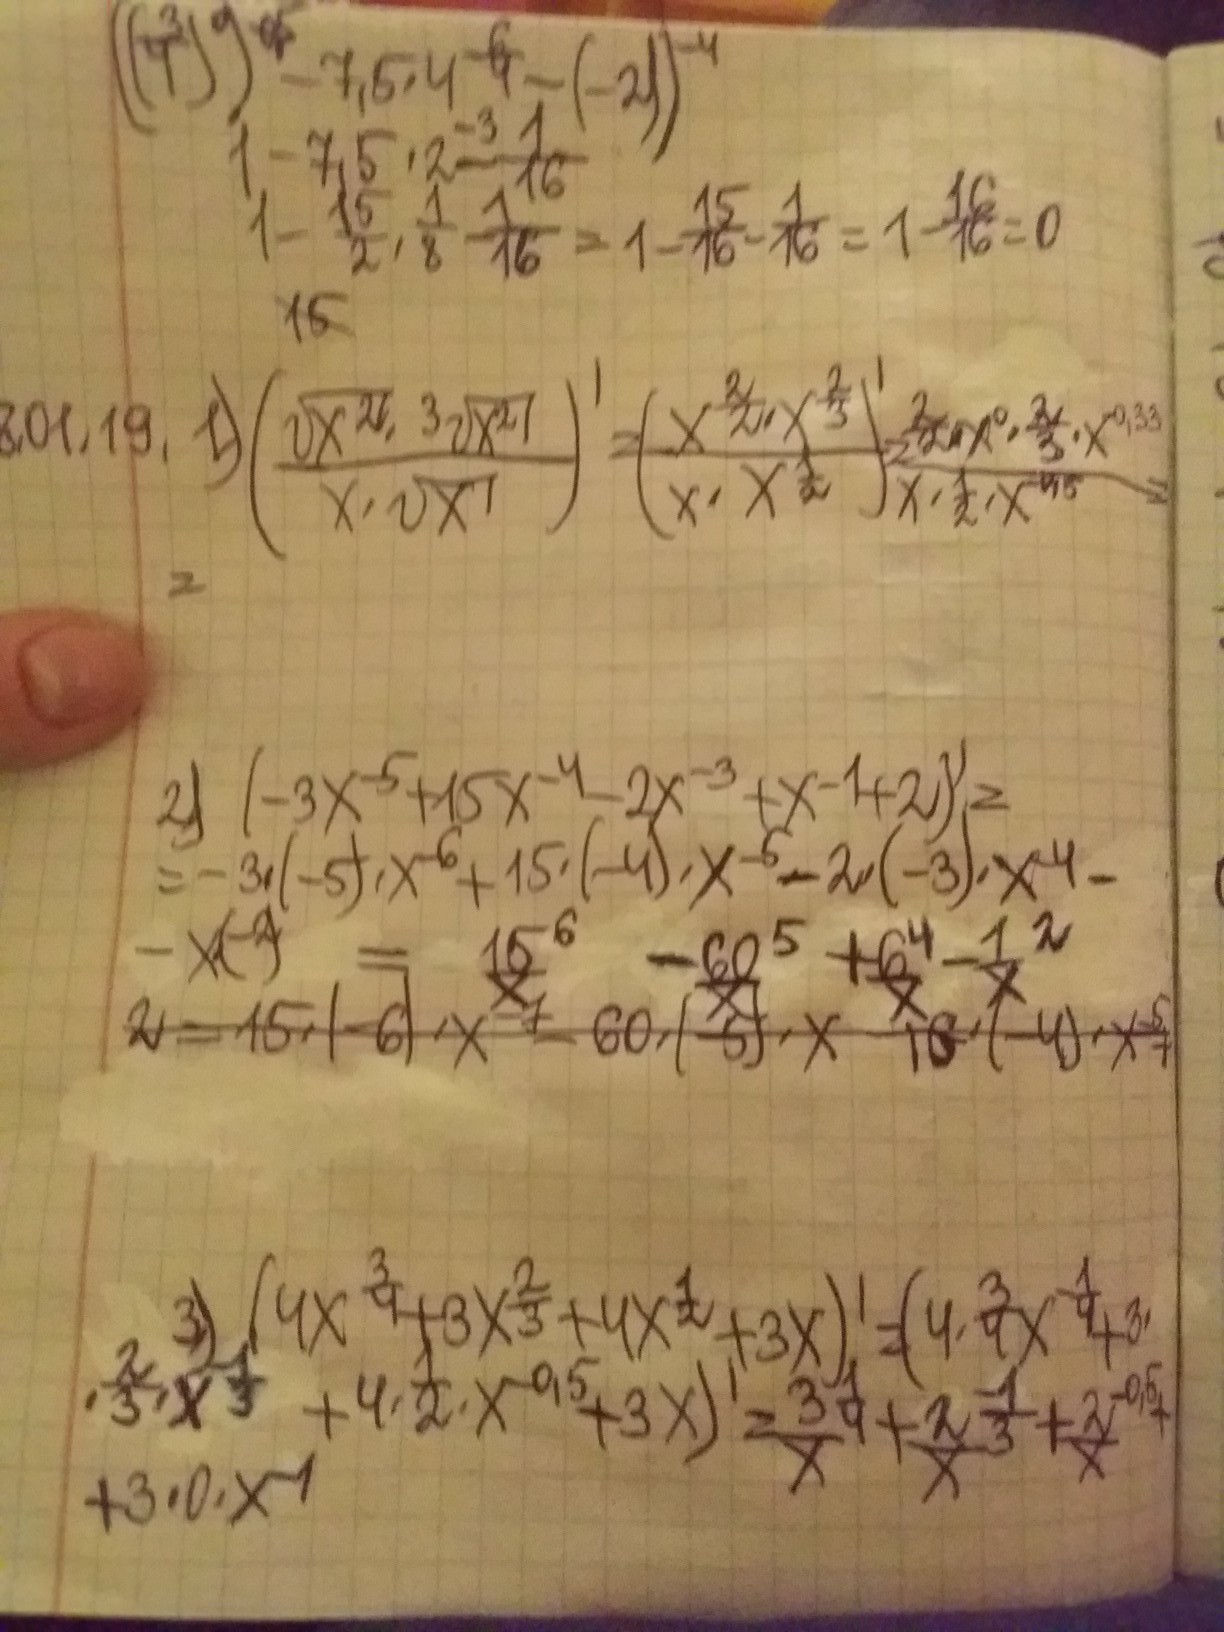 ((3/4)^0)^-0,5 − 7,5·4^-6/4 − (−2)^-4
1 − 7,5 · 2^-3 − 1/16
1 − 15/2 · 1/8 − 1/16 = 1 − 15/16 − 1/16 = 1 − 16/16 = 0
15
8.01.19. 1) (√x² · 3√x² / x · √x)' = (x^2/2 · x^2/3 / x · x^1/2)' = 2/2 · x^0 · 2/3 · x^0,33 / x · 1/2 · x^-0,5 =
=
2) (−3x^-5 + 15x^-4 − 2x^-3 + x^-1 + 2)' =
= −3·(−5)·x^-6 + 15·(−4)·x^-5 − 2·(−3)·x^-4 −
− x(^-2) = 15/x ^6 − 60/x ^5 + 6/x ^4 − 1/x ^2
2 = 15·(−6)·x^-7 − 60·(−5)·x 18·(−4)·x^-5
3) (4x^3/4 + 3x^2/3 + 4x^1/2 + 3x)' = (4·3/4 x^-1/4 + 3·
·2/3·x^-1/3 + 4·1/2·x^-0,5 + 3x)' = 3/x ^1/4 + 2/x ^-1/3 + 2/x ^-0,5 +
+3·0·x^-1